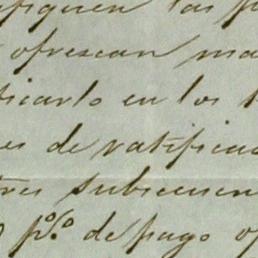 ifiquen las p
ofrescan ma
ticarlo en los t
es de ratificac
tres subsecuen
p%o de pago o